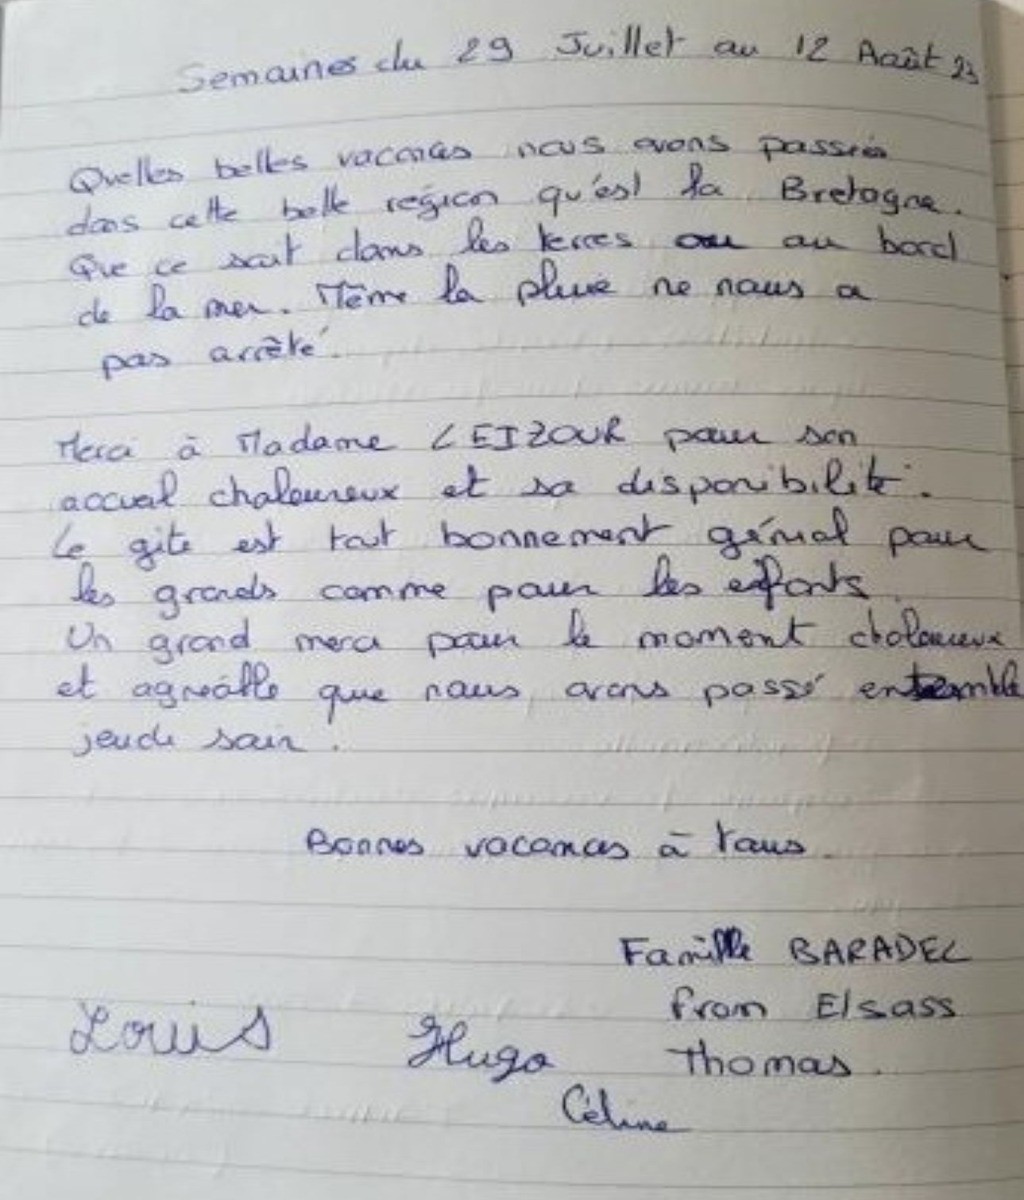 Semaines du 29 Juillet au 12 Août 23
Quelles belles vacances nous avons passées
dans cette belle région qu'est la Bretagne.
Que ce soit dans les terres ou au bord
de la mer. Même la pluie ne nous a
pas arrêté.
Merci à Madame LEIZOUR pour son
accueil chaleureux et sa disponibilité.
Le gite est tout bonnement génial pour
les grands comme pour les enfants.
Un grand merci pour le moment chaleureux
et agréable que nous avons passé ensemble
jeudi soir.
Bonnes vacances à tous.
Famille BARADEL
from Elsass
Louis Hugo Thomas.
Céline